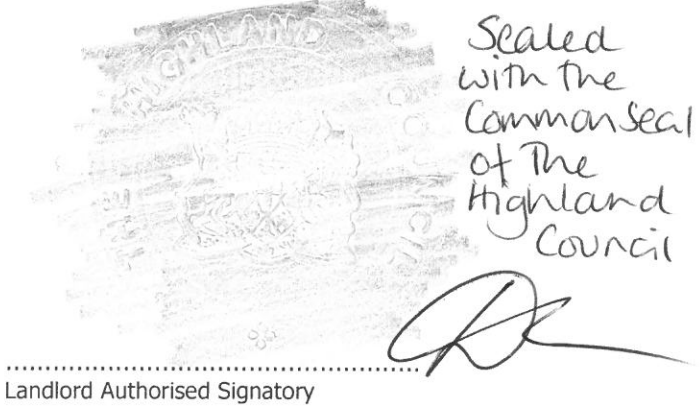 THE HIGHLAND COUNCIL
Sealed
with the
Common Seal
of The
Highland
Council
Landlord Authorised Signatory